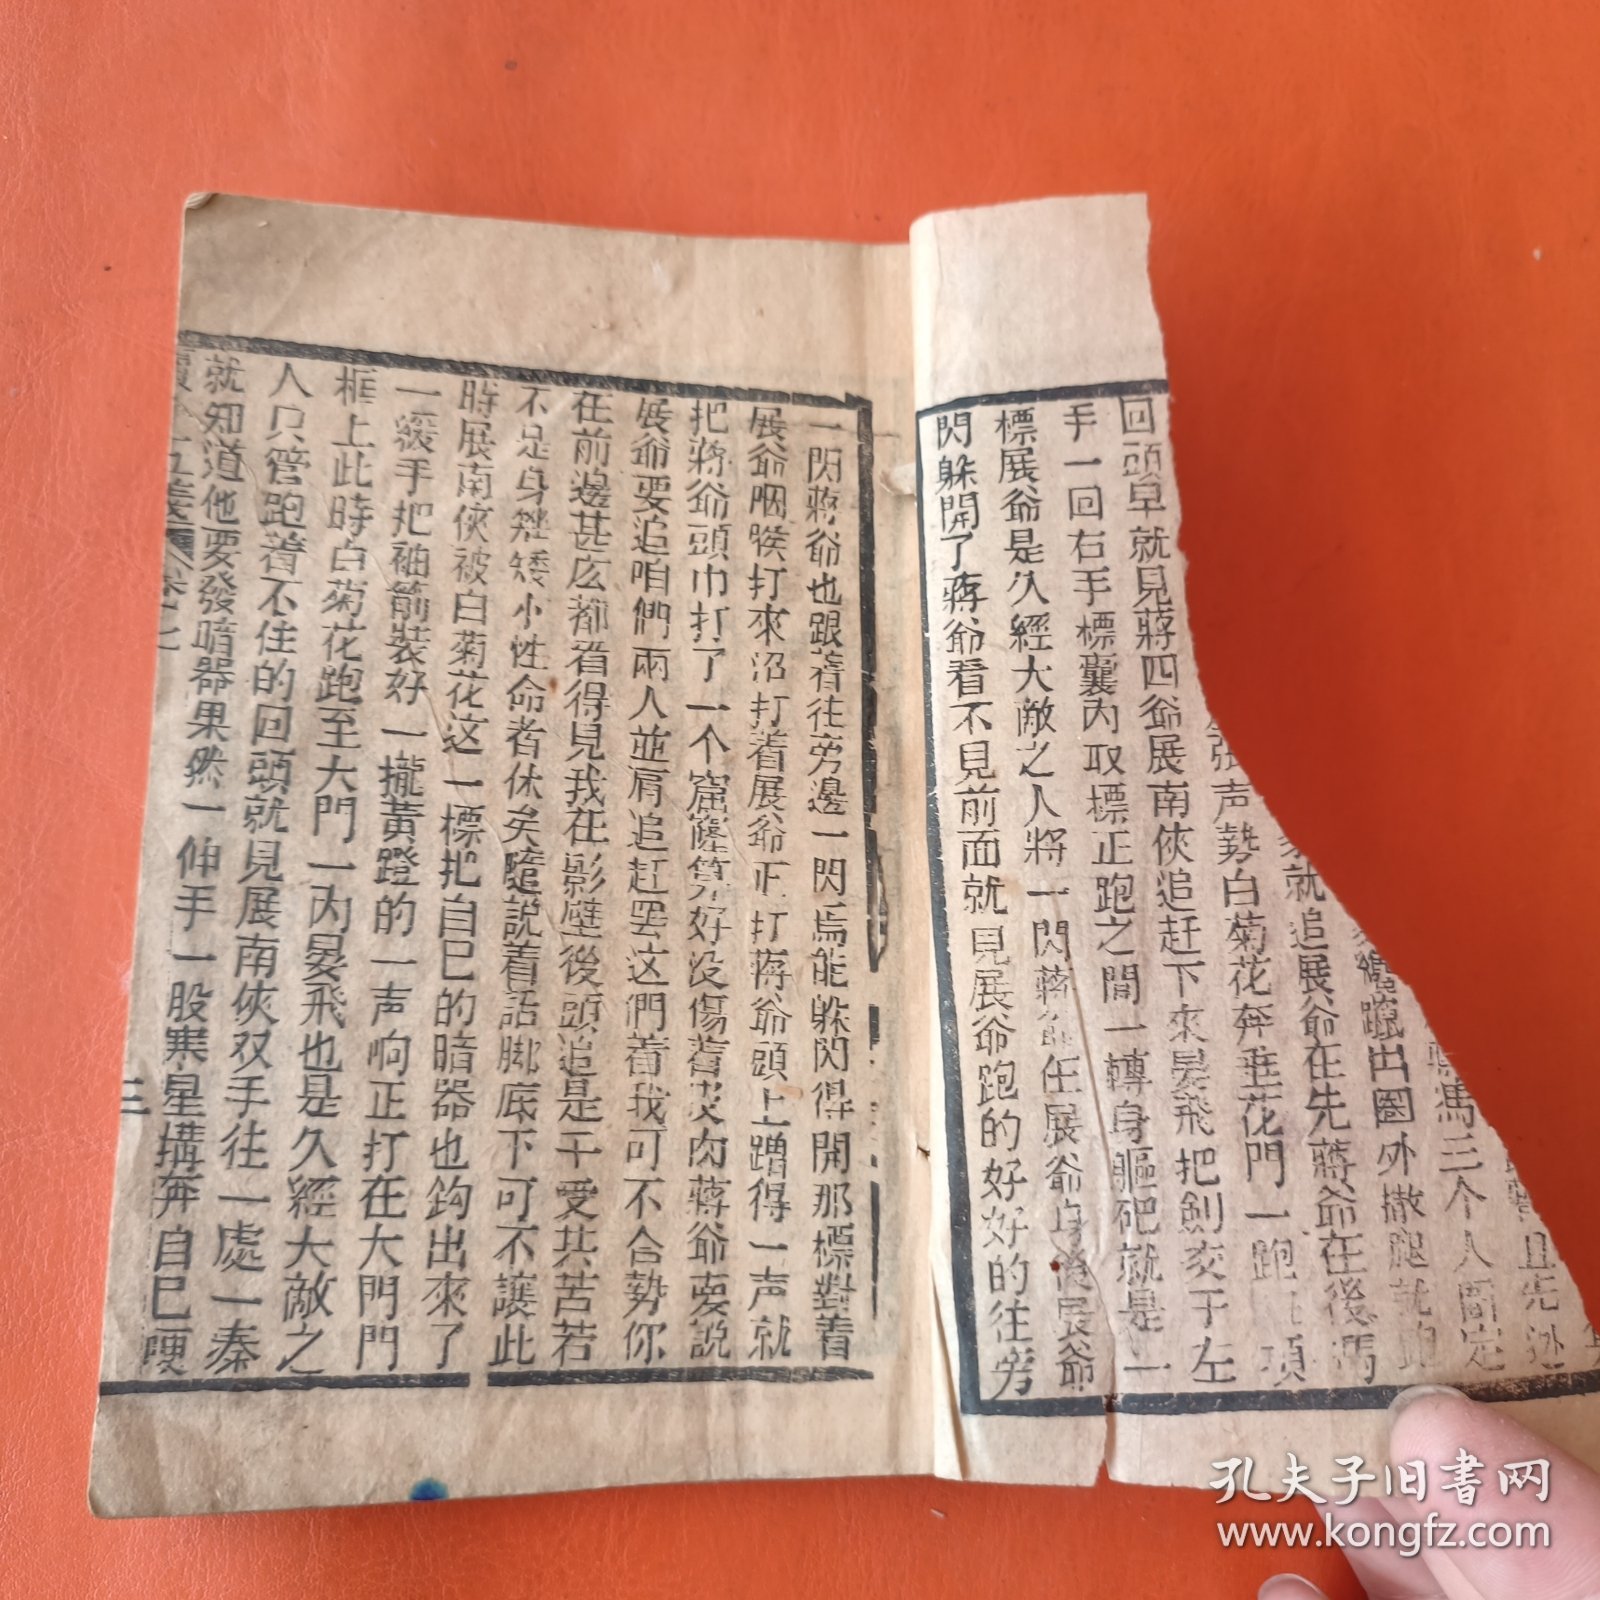 三个人
出圈外撒腿就跑
就追展爺在先蔣爺在後馮
張声勢白菊花奔垂花門一跑
回頭早就見蔣四爺展南俠追赶下來晏飛把劍交于左
手一回右手標囊內取標正跑之間一轉身軀吧就是一
標展爺是久經大敵之人將一閃蔣爺在展爺身後展爺
閃躲開了蔣爺看不見前面就見展爺跑的好好的往旁
一閃蔣爺也跟着往旁邊一閃焉能躲閃得開那標對着
展爺咽喉打來沼打着展爺正打蔣爺頭上蹭得一声就
把蔣爺頭巾打了一个窟窿算好没傷着皮肉蔣爺要說
展爺要追咱們兩人並肩追赶罢这們着我可不合势你
在前邊甚庅都看得見我在影壁後頭追是干受其苦若
不是身矬矮小性命者休矣隨說着話脚底下可不讓此
時展南俠被白菊花这一標把自己的暗器也鈎出來了
一緩手把袖箭裝好一攏黃蹬的一声响正打在大門門
框上此時白菊花跑至大門一內晏飛也是久經大敵之
人只管跑着不住的回頭就見展南俠双手往一處一秦
就知道他要發暗器果然一伸手一股寒星搆奔自己哽
三
孔夫子旧书网
www.kongfz.com